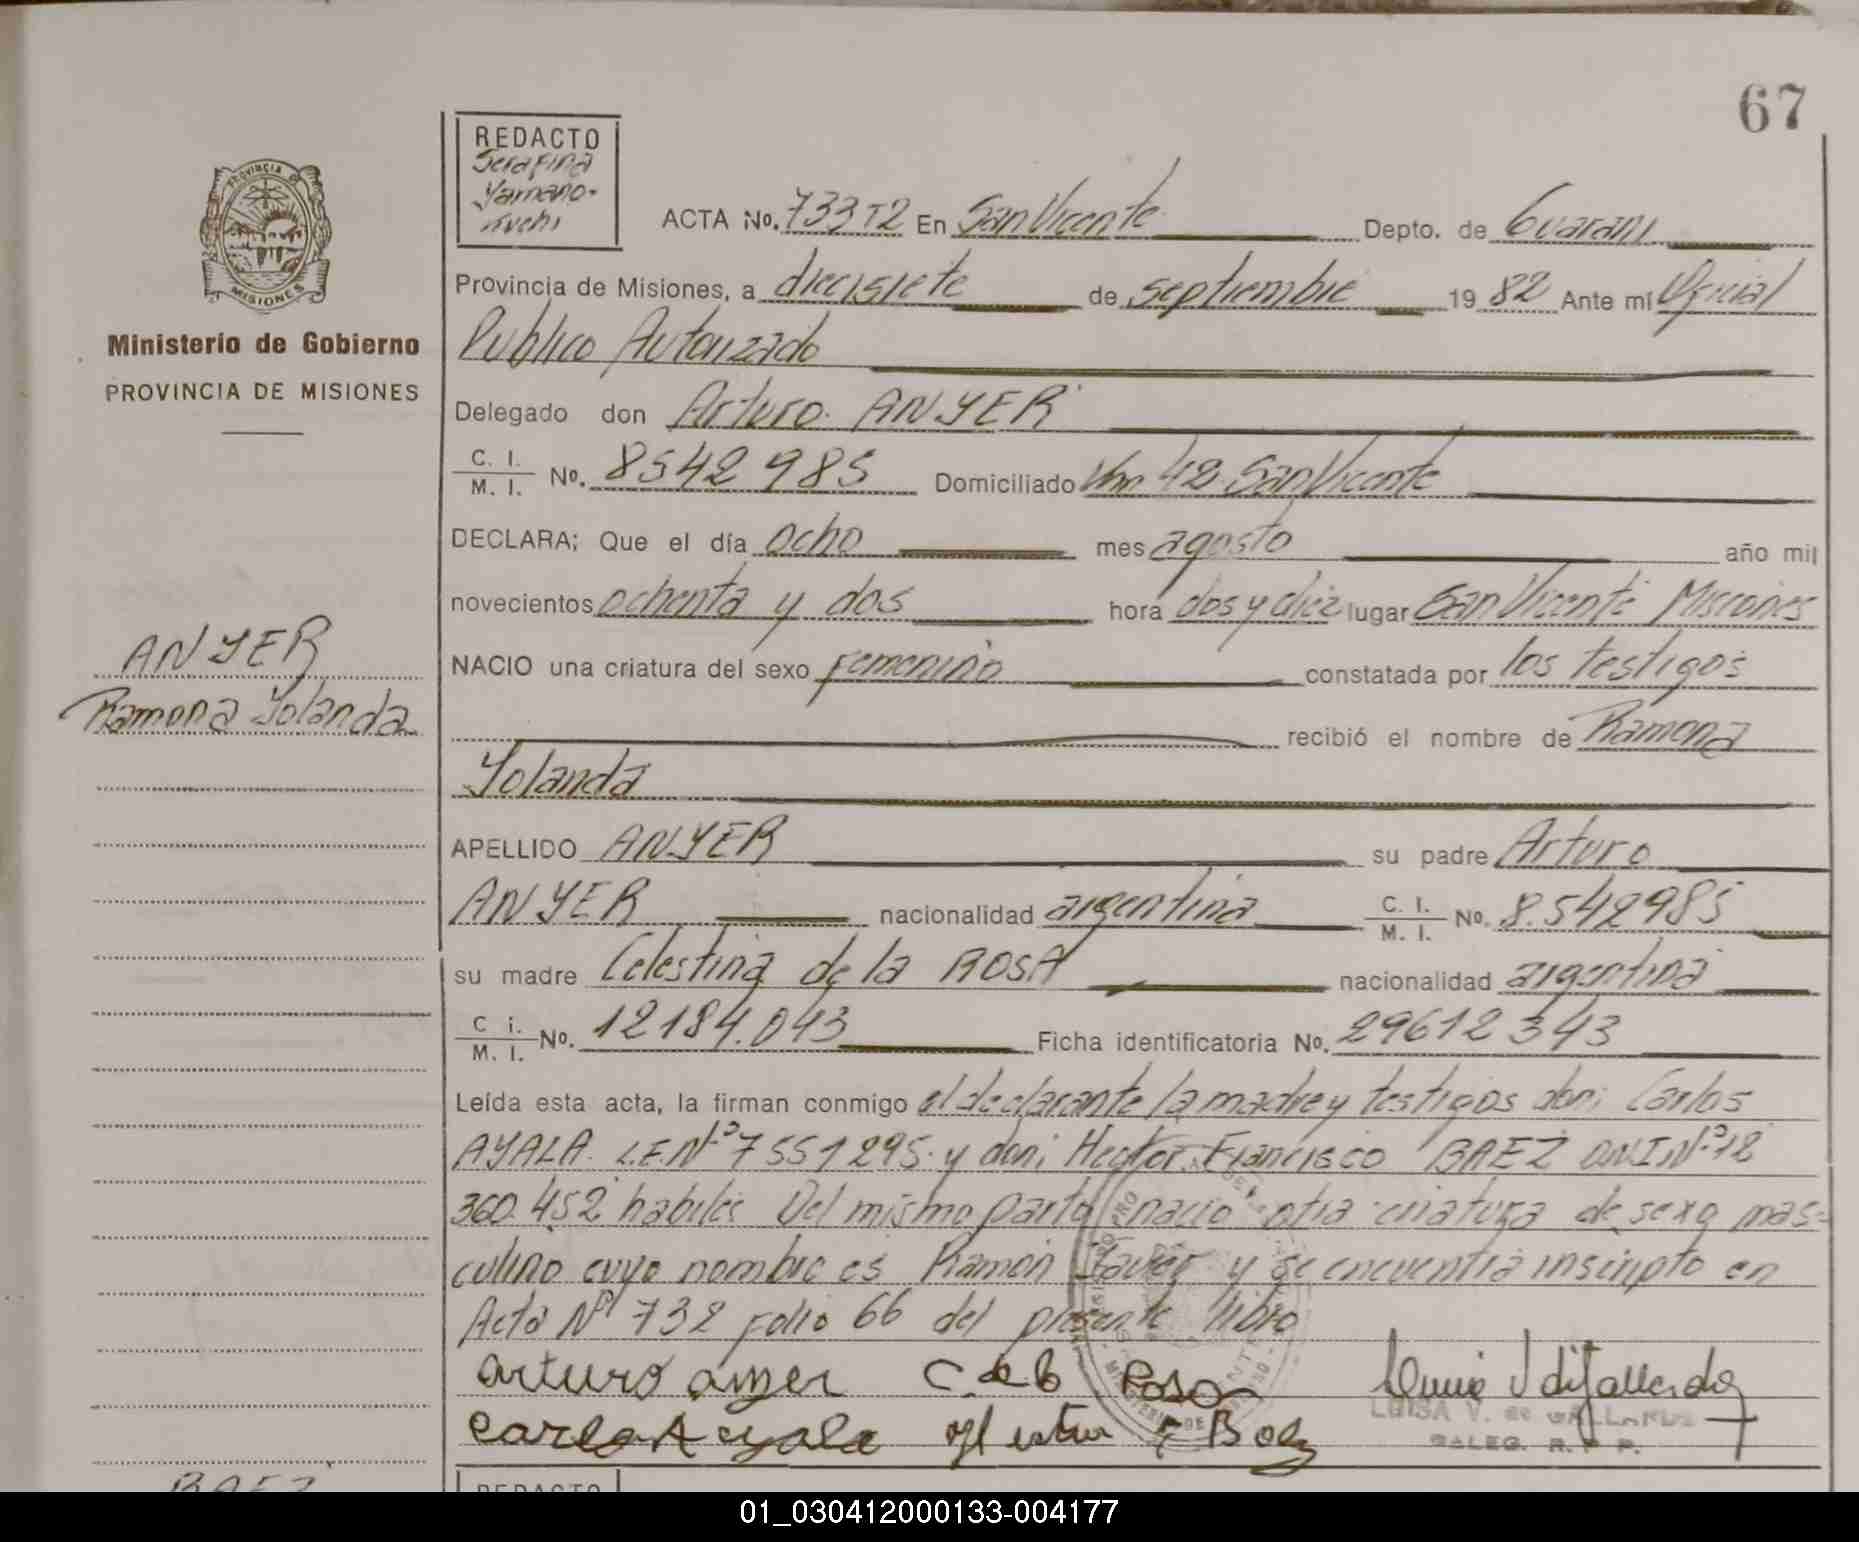 67
REDACTO
Serafina
Yamano-
PROVINCIA DE
MISIONES
ACTA No. 733 T2 En San Vicente Depto. de Guarani
Provincia de Misiones, a diecisiete de septiembre 19 82 Ante mí Oficial
Ministerio de Gobierno
Publico Autorizado
PROVINCIA DE MISIONES
Delegado don Arturo ANYER
C. I.
M. I. No. 8542985 Domiciliado Km 42 San Vicente
DECLARA; Que el día ocho mes agosto año mil
novecientos ochenta y dos hora dos y diez lugar San Vicente Misiones
ANYER
NACIO una criatura del sexo femenino constatada por los testigos
Ramona Yolanda
recibió el nombre de Ramona
Yolanda
APELLIDO ANYER su padre Arturo
ANYER nacionalidad argentina C. I.
M. I. No. 8.542985
su madre Celestina de la ROSA nacionalidad argentina
C i.
M. I. No. 12184.043 Ficha identificatoria No. 29612343
Leída esta acta, la firman conmigo el declarante la madre y testigos don: Carlos
AYALA. L.E.Nº 7551295. y don: Hector Francisco BAEZ DNI.Nº 12
360.452 habiles Del mismo parto nacio otra criatura de sexo mas-
culino cuyo nombre es Ramón Javier y se encuentra inscripto en
Acta Nº 732 folio 66 del presente libro
arturo anyer C. de la Rosa
Carlos Ayala F Baez
LUISA V. de GALLARDO
R. P. P.
BAEZ
REDACTO
01_030412000133-004177